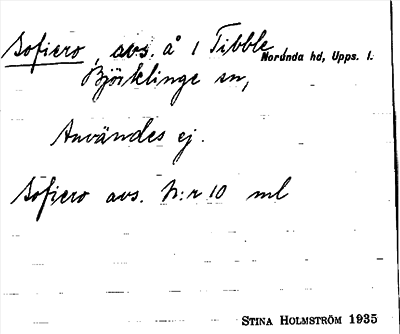 Sofiero, avs. å 1 Tibble, Norunda hd, Upps. l.
Björklinge sn,
Användes ej.
Sofiero avs. N:r 10 ml
STINA HOLMSTRÖM 1935